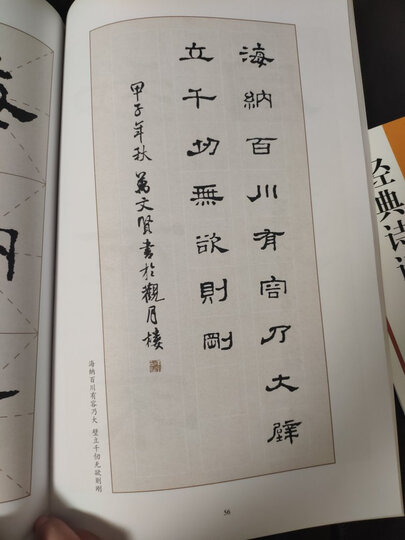 海納百川有容乃大壁
立千仞無欲則剛
甲子年秋萬文賢書於觀月樓
海納百川有容乃大 壁立千仞无欲則剛
56
经典诗